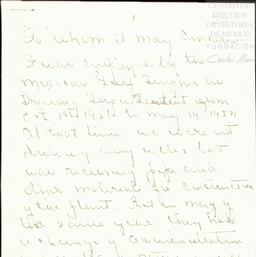 1
CENTRO DE
ESTUDIOS
DE HISTORIA
DE MEXICO
FUNDACIÓN
Carlos Slim
To whom it may Concern
I was employed by the
Mexican Gulf Sulphur as
Drilling Superintendent from
Oct 1st 1951 to May 14 1952.
At that time we were not
drilling any wells but
was receiving pipe and
other material for construction
of the plant. But in may of
the same year they had
a change of administration